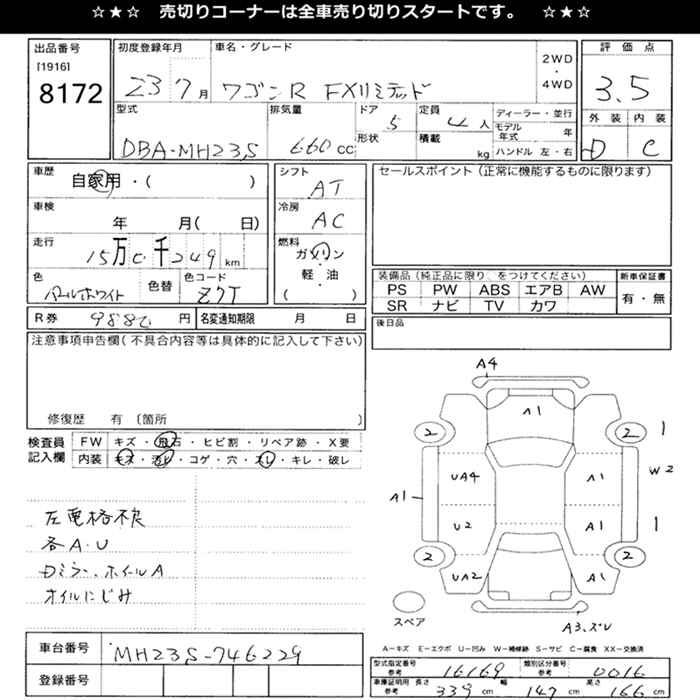 ☆★☆ 売切りコーナーは全車売り切りスタートです。 ☆★☆
出品番号
[1916]
8172
初度登録年月
23 7月
車名・グレード
ワゴンR FXリミテッド
2WD
・
4WD
評価点
3.5
外装 内装
D C
型式
DBA-MH23S
排気量
660 cc
ドア 5
形状
定員 4人
積載 kg
ディーラー・並行
モデル年式 年
ハンドル 左・右
車歴
自家用・( )
シフト
AT
セールスポイント(正常に機能するものに限ります)
車検
年 月( 日)
冷房
AC
走行
15万0千249km
燃料
ガソリン
・
軽油
( )
色
パールホワイト
色替
色コード
Z7T
装備品(純正品に限り、をつけてください)
PS PW ABS エアB AW
SR ナビ TV カワ
新車保証書
有・無
R券 9880円
名変通知期限 月 日
後日品
注意事項申告欄(不具合内容等は具体的に記入して下さい)
修復歴 有 〔箇所
検査員
記入欄
FW キズ・飛石・ヒビ割・リペア跡・X要
内装 キズ・汚レ・コゲ・穴・スレ・キレ・破レ
左電格不良
各A.U
Dミラー、ホイールA
オイルにじみ
A4
A1
2 2 1
UA4 A1 W2
A1 U2 A1 1
2 2
UA2 A1
スペア
A3.ズレ
A-キズ E-エクボ U-凹み W-補修跡 S-サビ C-腐食 XX-交換済
車台番号 MH23S-746229
登録番号
型式指定番号
参考
16169
類別区分番号
参考
0016
車庫証明用
参考
長さ 339cm
幅 147cm
高さ 166cm